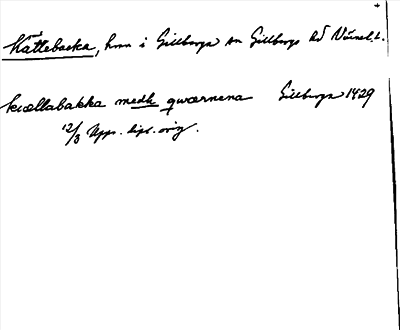 Kattebacka, hmn i Gillberga sn Gillbergs hd Värml. l.
kvællabakka medh qwærnena Gillberga 1429
12/3 Upps. dipl. orig.